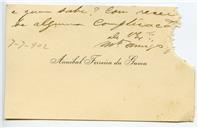 e quem sabe? Com recei
de alguma Complicaç
de V. Ex.ª
m.to amigo
7-7-902
Annibal Ferreira da Gama